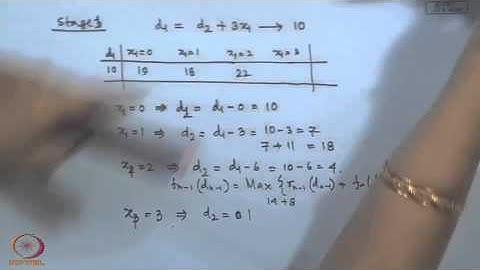 Stage 1 d₁ = d₂ + 3x₁ → 10
d₁ x₁=0 x₁=1 x₁=2 x₁=3
10 19 18 22
x₁=0 ⇒ d₂ = d₁-0 = 10
x₁=1 ⇒ d₂ = d₁-3 = 10-3 = 7
7+11 = 18
x₁=2 ⇒ d₂ = d₁-6 = 10-6 = 4.
fₙ₋₁(dₙ₋₁) = Max {rₙ₋₁(dₙ₋₁) +
14+8
x₁=3 ⇒ d₂ = 01